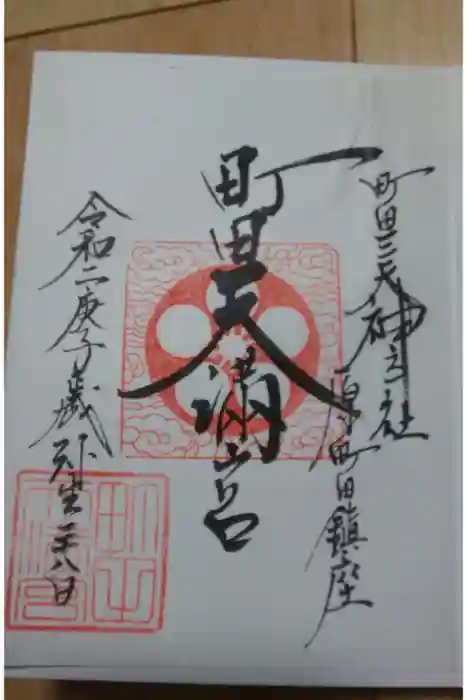 町田三天神社
原町田鎮座
町田天満宮
令和二庚子歳弥生二十八日